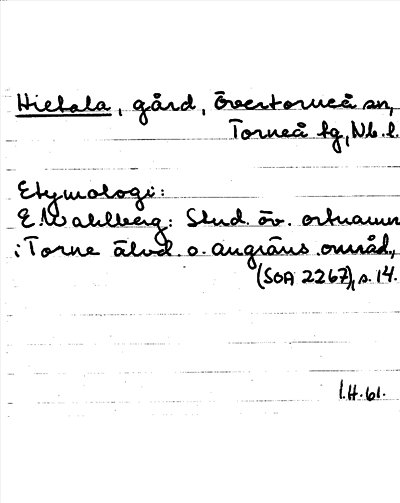 Hietala, gård, Övertorneå sn,
Torneå tg, Nb. l.
Etymologi:
E. Wahlberg: Stud. öv. ortnamn
i Torne älvd. o. angräns. områd.,
(SOA 2267), s. 14.
I.H. 61.